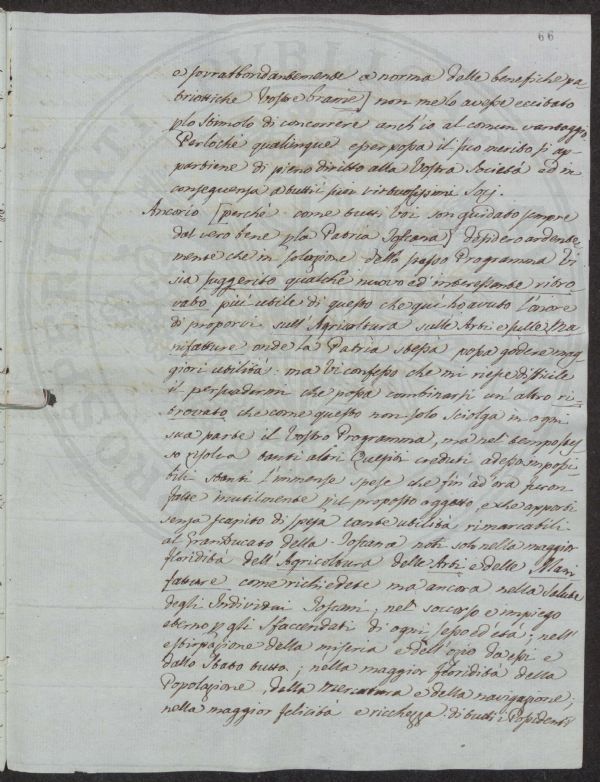 66
e sovrabbondantemente a norma delle benefiche pa
triottiche Vostre brame] non me lo avesse eccitato
p lo stimolo di concorrere anch'io al comun vantaggio
Perloche qualunque esser possa il suo merito si ap-
partiene di pieno diritto alla Vostra Società ed in
conseguenza a tutti i suoi virtuosissimi Socj.
Ancorio [perchè come tutti Voi son guidato sempre
dal vero bene p la Patria Toscana] desidero ardente
mente che in soluzione dello stesso Programma Vi
sia suggerito qualche nuovo ed interessante ritro
vato più utile di questo che qui ho avuto l'onore
di proporvi sull'Agricoltura sulle Arti e sulle Ma
nifatture onde la Patria stessa possa godere mag
giori utilità: ma Vi confesso che mi riesce difficile
il persuadermi che possa combinarsi un altro ri-
trovato che come questo non solo sciolga in ogni
sua parte il Vostro Programma, ma nel tempo stes
so risolva tanti altri Quesiti creduti adesso impossi
bili stanti l'immense spese che fin ad'ora furon
fatte inutilmente p il proposto oggetto, e che apporti
senza scapito di spesa tante utilità rimarcabili
al GranDucato della Toscana non solo nella maggior
floridità dell'Agricoltura delle Arti e delle Mani
fatture come richiedete ma ancora nella Salute
degli Individui Toscani; nel soccorso e impiego
eterno p gli sfaccendati di ogni sesso ed età; nell'
estirpazione della miseria e dell'ozio da essi e
dallo Stato tutto; nella maggior floridità della
Popolazione, della Mercatura e della navigazione;
nella maggior felicità e ricchezza di tutti i Possidenti